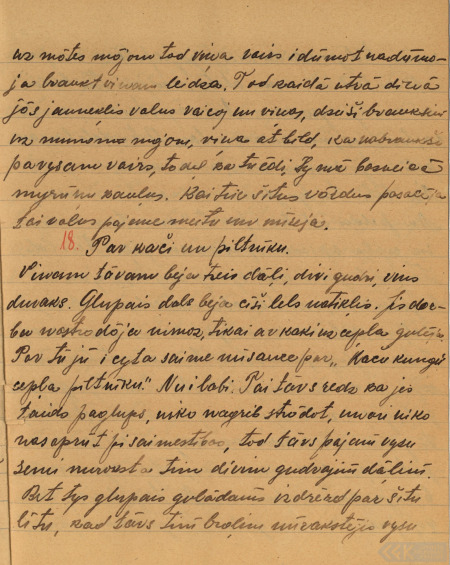 uz mōtes mōjom tod viņa vairs idūmot nadūmo-
ja braukt viņam leidza. Tod kaidā ūtrā dinā
jōs jauneklis valns vaicoj nu viņas,
uz mōmom mojom, viņa atbild, ka nabraukšs
pa vysam vairs, tod ka tu ēdi, Ty mā baznicā
myrūņu kaulus. Kai tik šitus vōrdus pasacēja
tai valns pajume meitu un
18. Par kači un piltnīku.
Vinam tāvam beja treis dāli, divi gudri, vins
duraks. Glupais dāls beja ciši lels natiklis. Jis dor-
bu nastrōdōja nimoz, tikai ar kaki uz cepļa gulēja.
Par tū jū i cyta saime nūsauce par „Kaču kungu
cepļa piltnīku". Nu i labi. Tai tāvs redz ka jis
taids paglups, niko nagrib strōdot, un ni niko
nasaprūt pi saimestibas, tod tāvs pajam vysu
zemi nūroksta tim divim gudrajim dālim.
Bet tys glupais gulādams izdzērd par šitū
litu, kad tāvs tim broļim nūrakstējs vysu